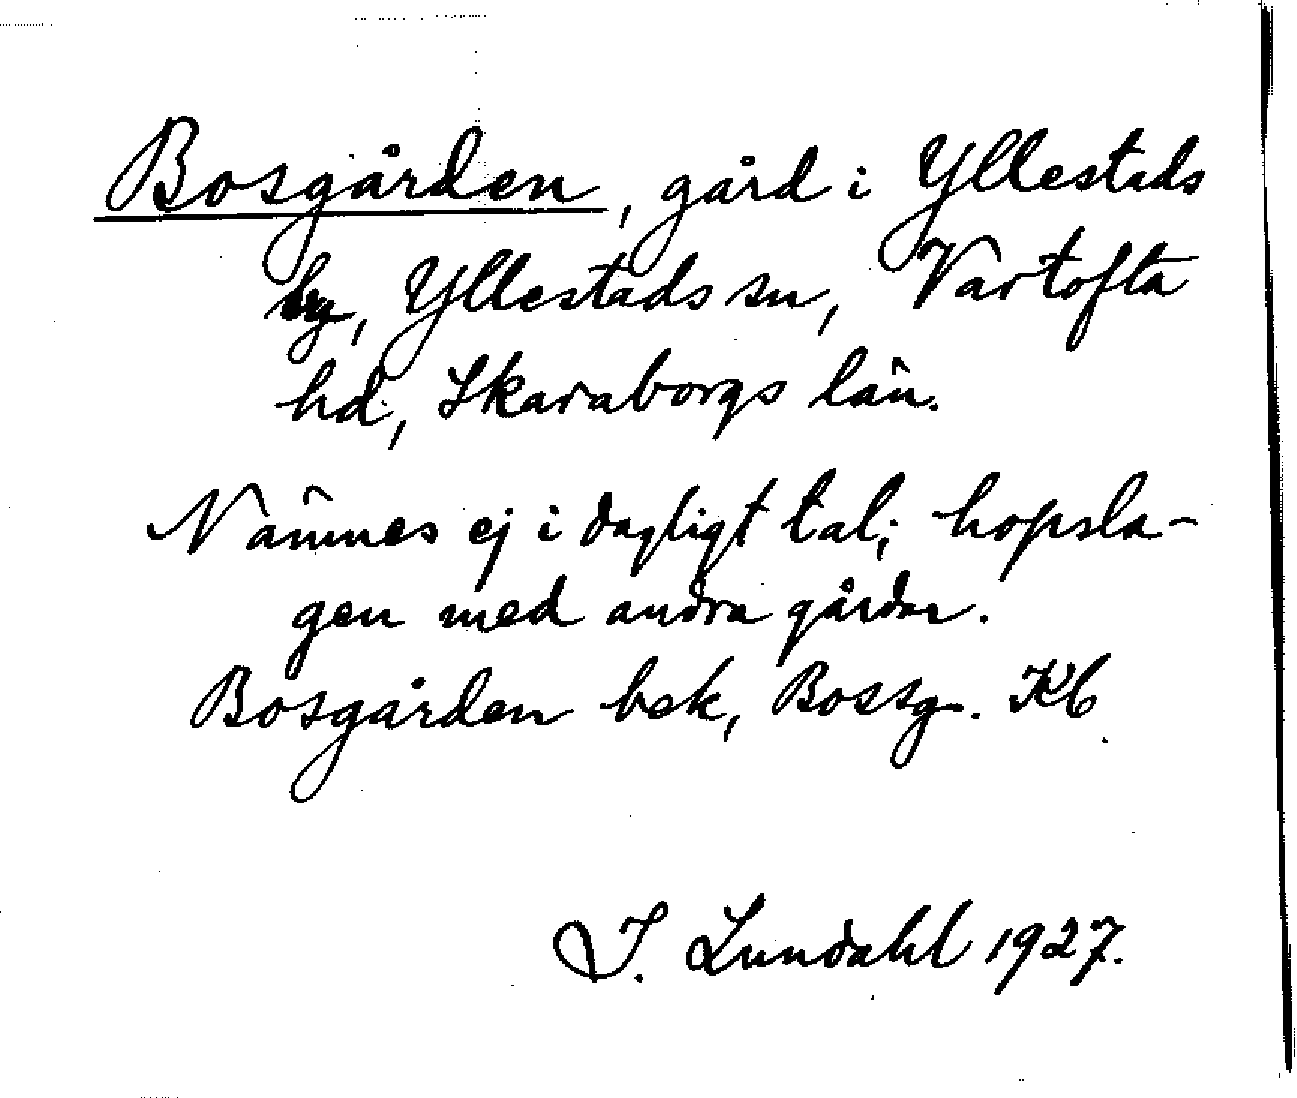 Bosgården, gård i Yllestads
by, Yllestads sn, Vartofta
hd, Skaraborgs län.
Nämnes ej i dagligt tal; hopsla-
gen med andra gårdar.
Bosgården bek, Bossg. Kb
I. Lundahl 1927.